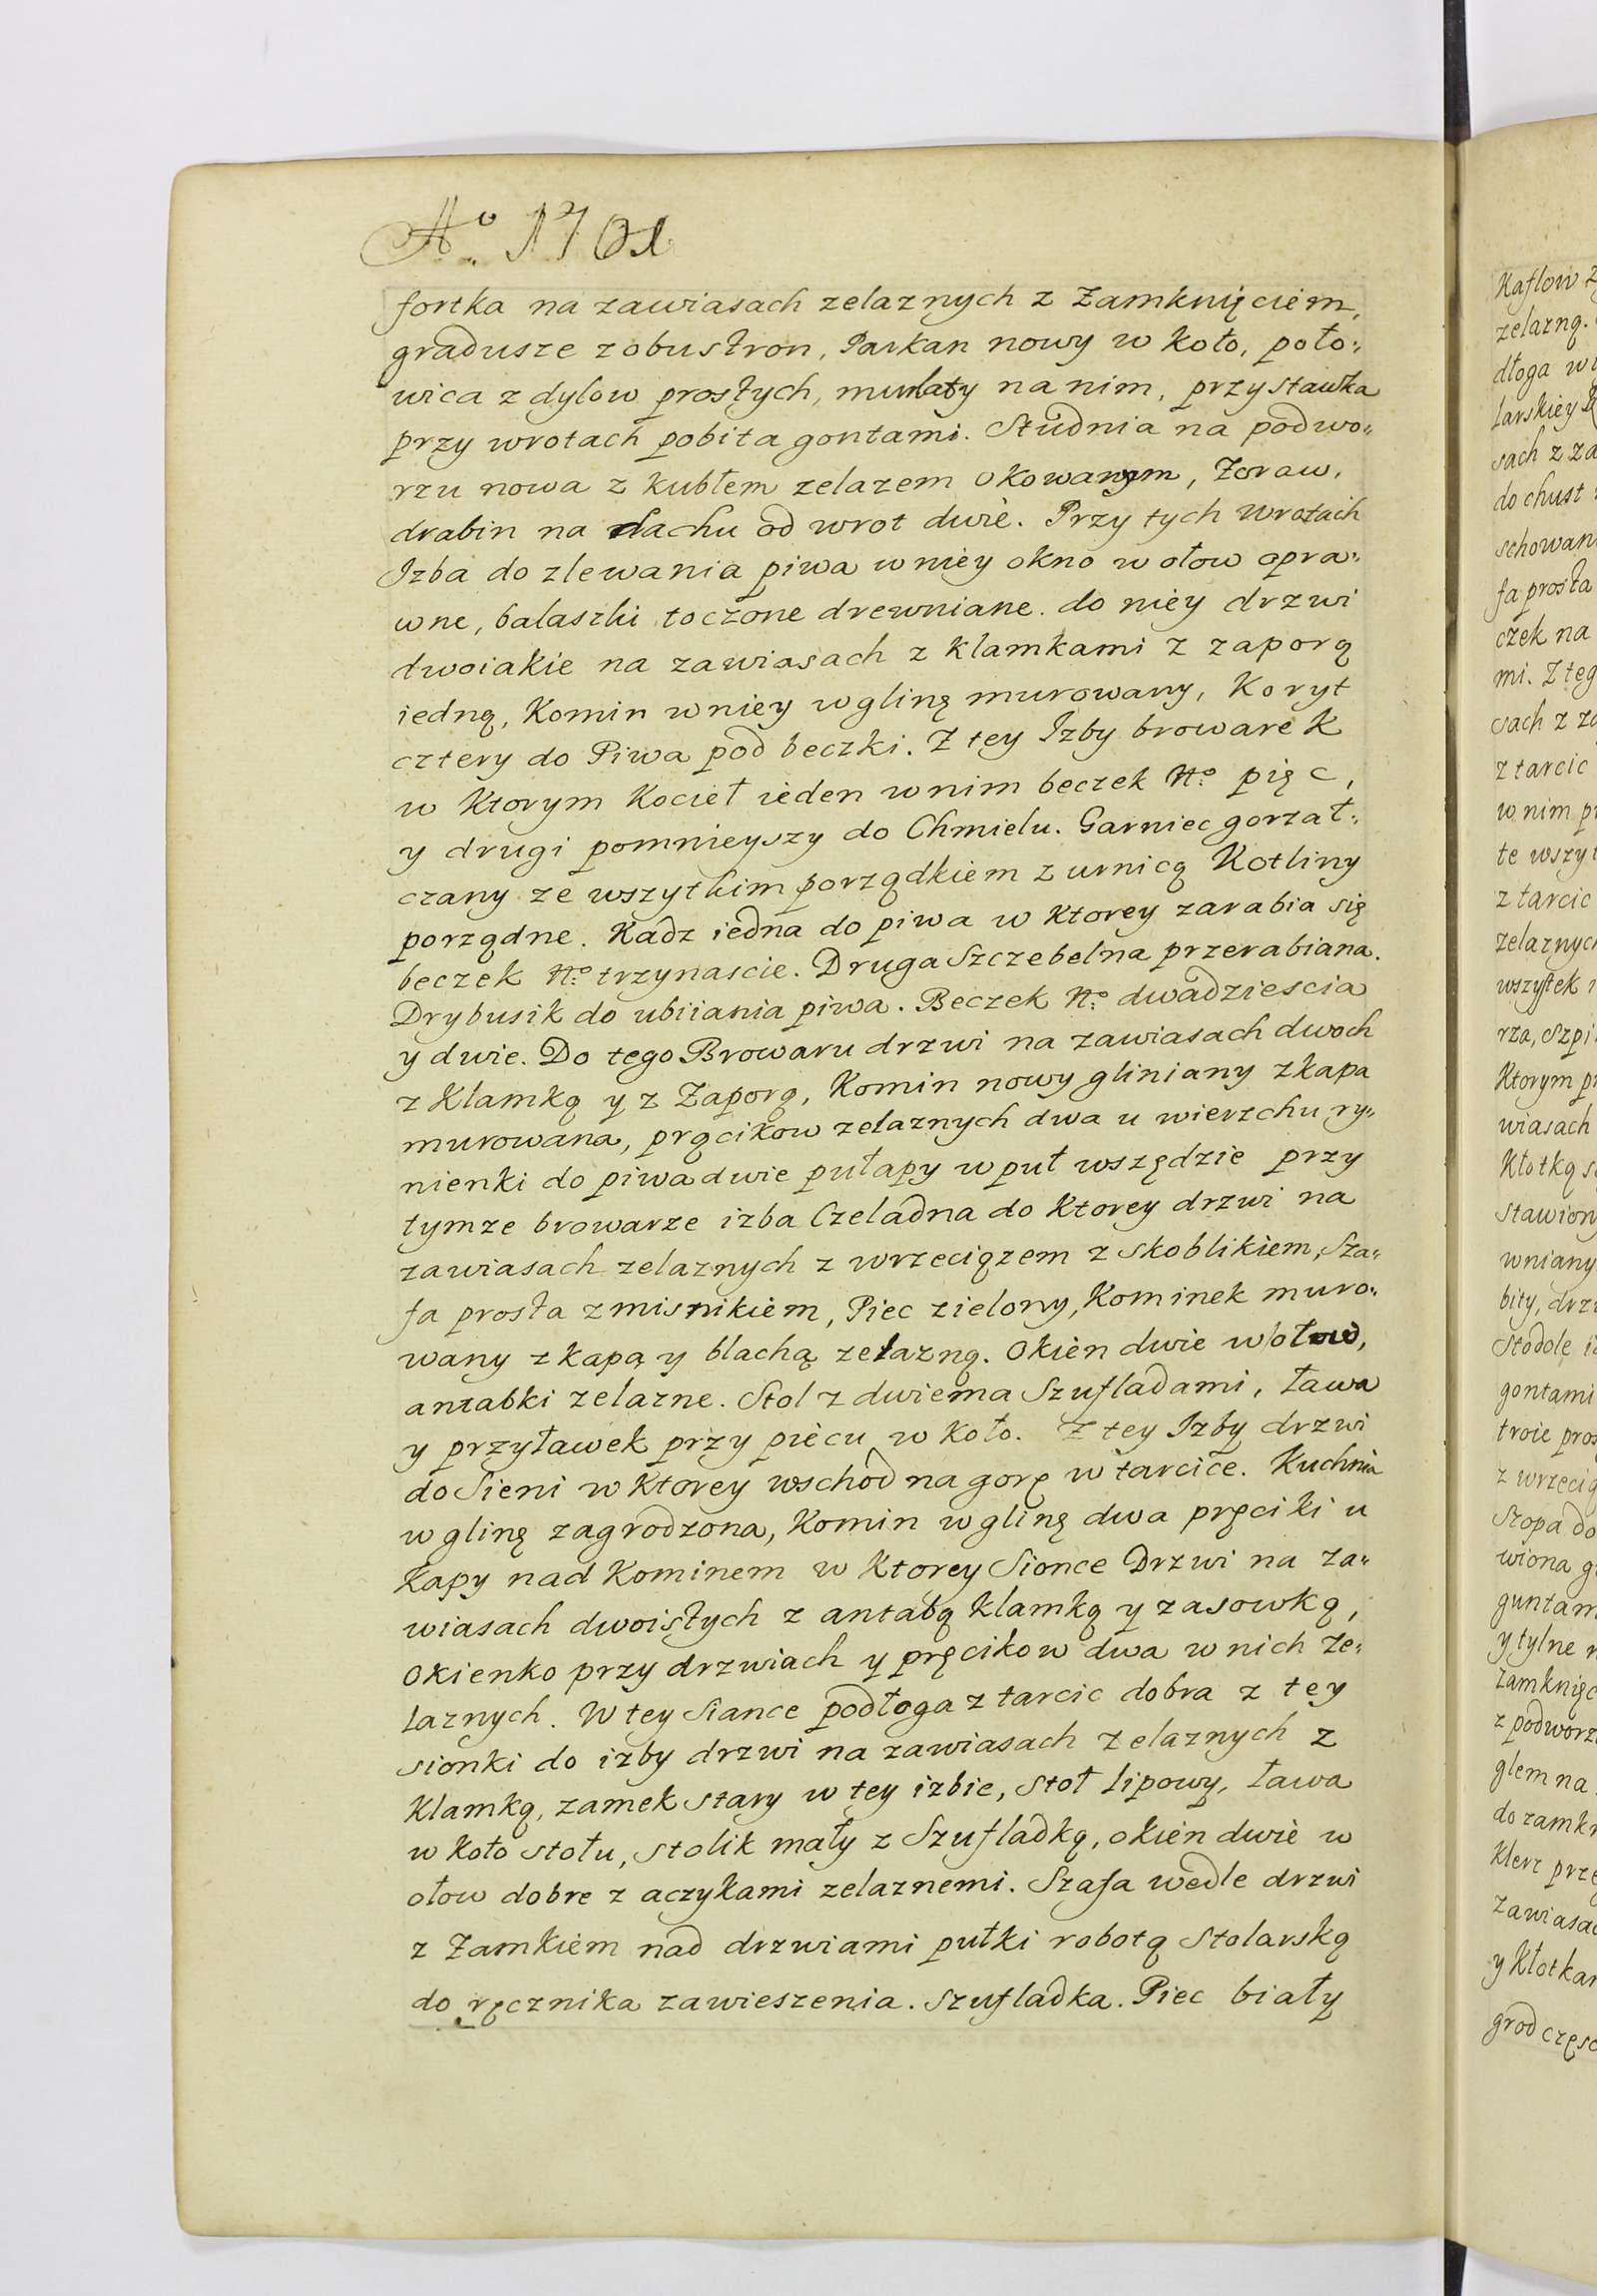 Aº 1701
fortka na zawiasach zelaznych z Zamknięciem,
gradusze z obu stron, Parkan nowy w koło, poło:
wica z dylow prostych, murłaty na nim, przystawka
przy wrotach pobita gontami. Studnia na podwo:
rzu nowa z kubłem zelazem okowanym, Zoraw,
drabin na dachu od wrot dwie. Przy tych wrotach
Izba do zlewania piwa w niey okno w ołow opra:
wne, balaszki toczone drewniane. do niey drzwi
dwoiakie na zawiasach z klamkami z zaporą
iedną, Komin w niey w glinę murowany, Koryt
cztery do Piwa pod beczki. Z tey Izby browarek
w Ktorym Kocieł ieden w nim beczek Nº pięc,
y drugi pomnieyszy do Chmielu. Garniec gorzał:
czany ze wszytkim porządkiem z urnicą Kotliny
porządne. Kadz iedna do piwa w Ktorey zarabia się
beczek Nº trzynascie. Druga Szczebelna przerabiana.
Drybusik do ubiiania piwa. Beczek Nº dwadziescia
y dwie. Do tego Browaru drzwi na zawiasach dwoch
z Klamką y z Zaporą, Komin nowy gliniany z kapa
murowana, prącikow zelaznych dwa u wierzchu ry:
nienki do piwa dwie pułapy w puł wszędzie przy
tymze browarze izba Czeladna do Ktorey drzwi na
zawiasach zelaznych z wrzeciązem z skoblikiem, Sza:
fa prosta z misnikiem, Piec zielony, Kominek muro:
wany z kapą y blachą zelazną. Okien dwie w ołow,
antabki zelazne. Stol z dwiema Szufladami, ława
y przyławek przy piecu w koło. Z tey Izby drzwi
do Sieni w Ktorey wschod na gorę w tarcice. Kuchnia
w glinę zagrodzona, Komin w glinę dwa pręciki u
Kapy nad Kominem w Ktorey Sionce Drzwi na za:
wiasach dwoistych z antabą klamką y zasowką,
Okienko przy drzwiach y pręcikow dwa w nich ze:
laznych. W tey Siance podłoga z tarcic dobra z tey
sionki do izby drzwi na zawiasach zelaznych z
Klamką, zamek stary w tey izbie, stoł lipowy, ława
w koło stołu, stolik mały z Szufladką, okien dwie w
ołow dobre z aczykami zelaznemi. Szafa wedle drzwi
z Zamkiem nad drzwiami pułki robotą Stolarską
do ręcznika zawieszenia. Szufladka. Piec biały
Kaflow z
zelazną.
dłoga w
larskiey
sach z za
do chust
schowan
fa prosta
czek na
mi. Z teg
sach z za
z tarcic
w nim pr
te wszyt
z tarcic
zelaznych
wszytek
rza, Szpi
Ktorym pr
wiasach
Kłotką s
stawiony
wniany
bity, drz
Stodole i
gontami
troie pros
z wrzecią
Szopa do
wiona g
guntam
y tylne n
Zamknięc
z podworz
glem na
do zamkn
Klerz prze
Zawiasac
y Kłotkam
grod częsc